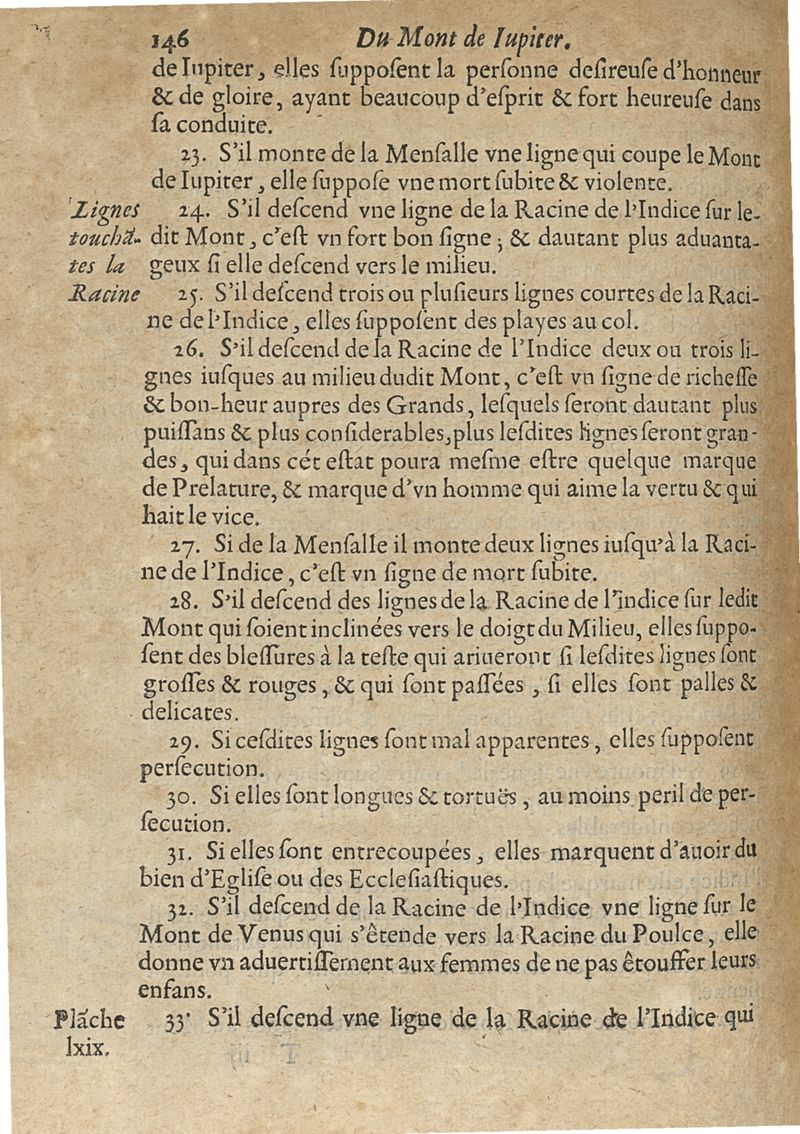 146 Du Mont de Iupiter.
de Iupiter, elles ſuppoſent la perſonne deſireuſe d'honneur
& de gloire, ayant beaucoup d'eſprit & fort heureuſe dans
ſa conduite.
23. S'il monte de la Menſalle vne ligne qui coupe le Mont
de Iupiter, elle ſuppoſe vne mort ſubite & violente.
Lignes 24. S'il deſcend vne ligne de la Racine de l'Indice ſur le-
touchā- dit Mont, c'eſt vn fort bon ſigne; & dautant plus aduanta-
tes la geux ſi elle deſcend vers le milieu.
Racine 25. S'il deſcend trois ou pluſieurs lignes courtes de la Raci-
ne de l'Indice, elles ſuppoſent des playes au col.
26. S'il deſcend de la Racine de l'Indice deux ou trois li-
gnes iuſques au milieu dudit Mont, c'eſt vn ſigne de richeſſe
& bon-heur aupres des Grands, leſquels ſeront dautant plus
puiſſans & plus conſiderables, plus leſdites lignes ſeront gran-
des, qui dans cét eſtat poura meſme eſtre quelque marque
de Prelature, & marque d'vn homme qui aime la vertu & qui
hait le vice.
27. Si de la Menſalle il monte deux lignes iuſqu'à la Raci-
ne de l'Indice, c'eſt vn ſigne de mort ſubite.
28. S'il deſcend des lignes de la Racine de l'indice ſur ledit
Mont qui ſoient inclinées vers le doigt du Milieu, elles ſuppo-
ſent des bleſſures à la teſte qui ariueront ſi leſdites lignes ſont
groſſes & rouges, & qui ſont paſſées, ſi elles ſont palles &
delicates.
29. Si ceſdites lignes ſont mal apparentes, elles ſuppoſent
perſecution.
30. Si elles ſont longues & tortuës, au moins peril de per-
ſecution.
31. Si elles ſont entrecoupées, elles marquent d'auoir du
bien d'Egliſe ou des Eccleſiaſtiques.
32. S'il deſcend de la Racine de l'Indice vne ligne ſur le
Mont de Venus qui s'êtende vers la Racine du Poulce, elle
donne vn aduertiſſement aux femmes de ne pas êtouffer leurs
enfans.
Plāche 33. S'il deſcend vne ligne de la Racine de l'Indice qui
lxix.